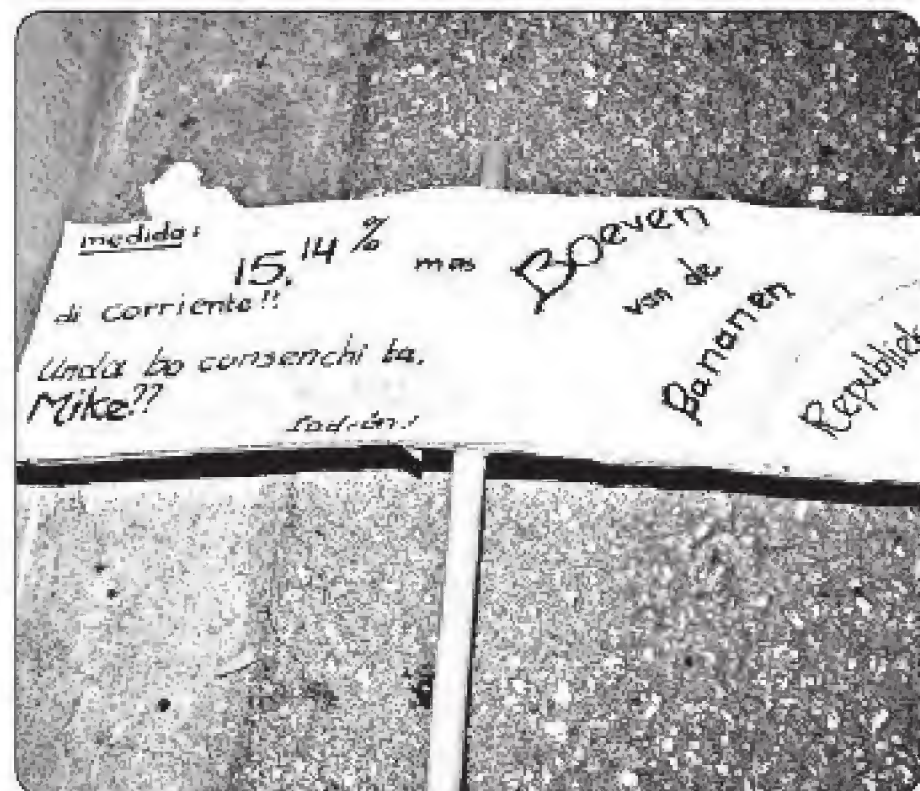 medida:
15,14% mas
di corriente!!
Unda bo consenchi ta,
Mike??
Ladrón!
Boeven
van de
Bananen
Republiek